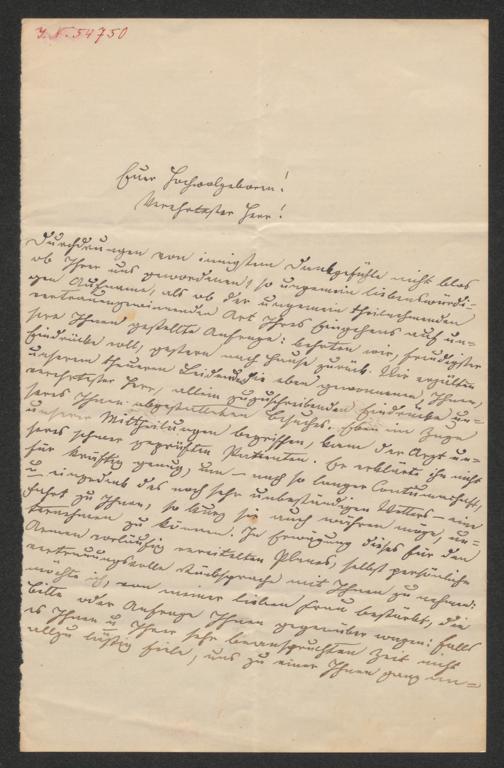 J. N. 54750
Euer Hochwolgeboren!
Verehrtester Herr!
Durchdrungen von innigstem Dankgefühle nicht blos
ob Ihrer uns gewordenen, so ungemein liebenswürdi-
gen Aufnahme, als ob der ungemein theilnehmenden
vertrauengewinnenden Art Ihres Eingehens auf un-
sere Ihnen gestellte Anfrage: kehrten wir, freudigster
Eindrücke voll, gestern nach Hause zurück. Wir erzählten
unserem theueren Leidenden die eben gewonnenen, Ihnen,
verehrtester Herr, allein zuzuschreibenden Eindrücke un-
seres Ihnen abgestatteten Besuchs. Eben im Zuge
unserer Mittheilungen begriffen, kam der Arzt un-
seres schwer geprüften Patienten. Er erklärte ihn nicht
für kräftig genug, um – nach so langer Contumazhaft,
u eingedenk des noch sehr unbeständigen Wetters – eine
Fahrt zu Ihnen, so kurz sie auch währen möge, un-
ternehmen zu können. In Erwägung dieses für den
Armen vorläufig vereitelten Planes, selbst persönliche
vertrauungsvolle Rücksprache mit Ihnen zu nehmen:
möchte ich, von meiner lieben Frau bestärkt, die
Bitte oder Anfrage Ihnen gegenüber wagen: falls
es Ihnen u Ihrer sehr beanspruchten Zeit nicht
allzu lästig fiele, uns zu einer Ihnen ganz un-